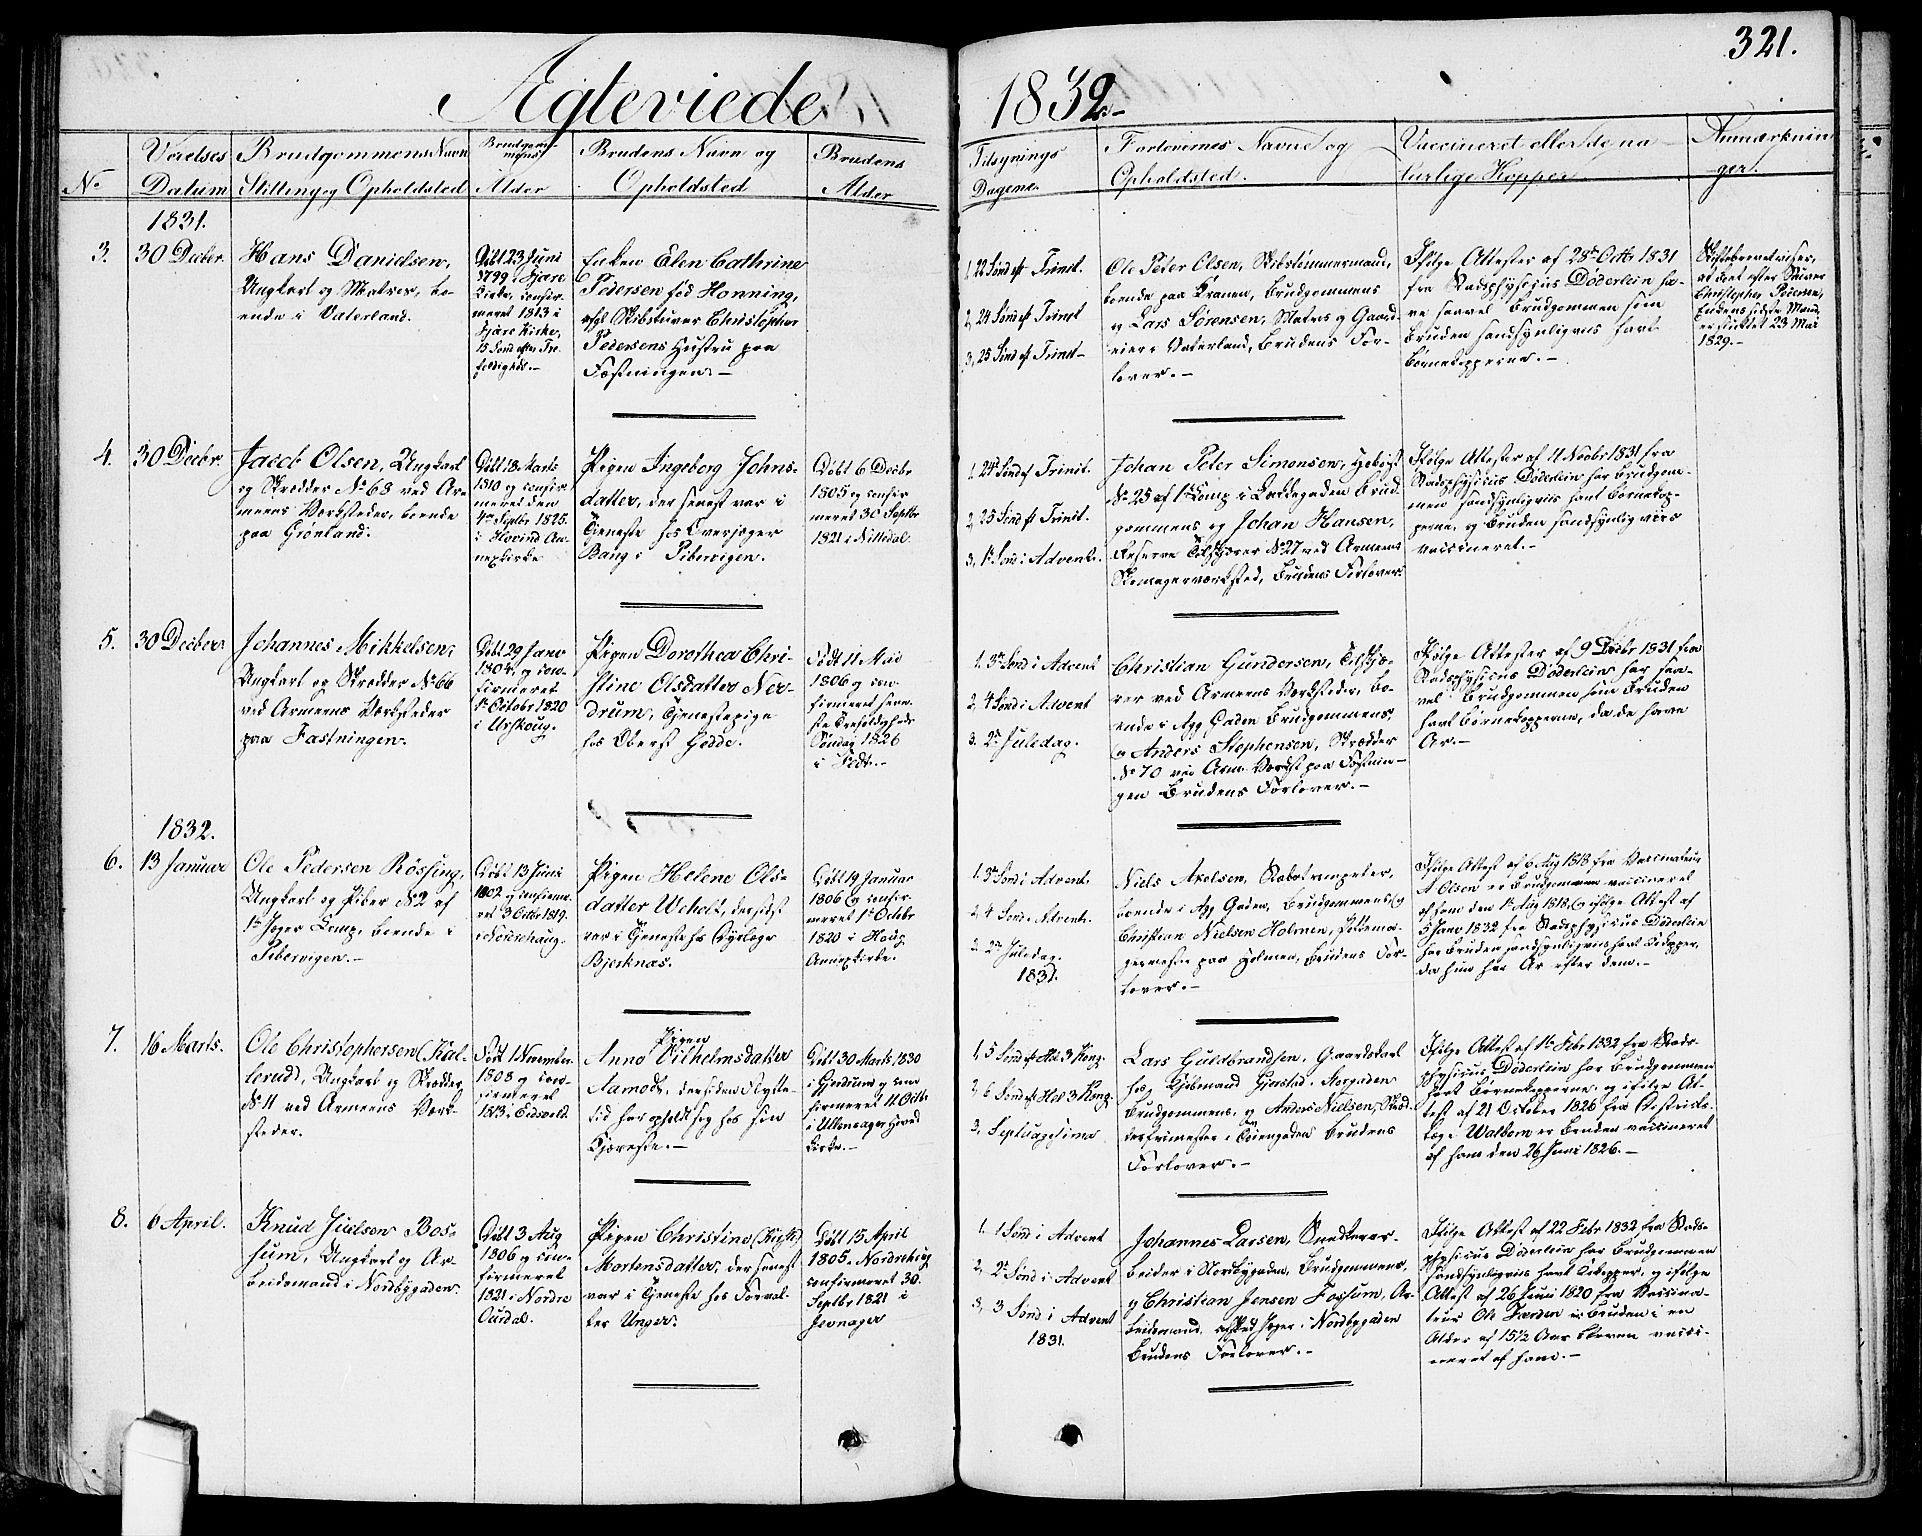 321.
Ægteviede
1832.
No
Vielses Datum
Brudgommens Navn Stilling og Opholdsted
Brudgommens Alder
Brudens Navn og Opholdsted
Brudens Alder
Tilsynings Dagene.
Forlovernes Navne og Opholdsted.
Vaccineret eller de naturlige Kopper
Anmærkninger.
1831.
3.
30 Decbr.
Hans Danielsen,
Ungkarl og Matros, bo-
ende i Vaterland.
Døbt 23 Juni
1799 i
Kirke, confir-
meret 1813 i
Kirke,
15 Sønd efter Tre-
foldighed.-
Enken Elen Cathrine
Pedersen fød Honning,
afgl Skibstuver Christopher
Pedersens Hustru paa
Fæstningen.-
1, 22 Sønd eft Trinit.
2, 24 Sønd eft Trinit
3, 25 Sønd eft Trinit-
Ole Peter Olsen, Skibstømmermand,
boende paa Kranen, Brudgommens
og Lars Sørensen, Matros og Gaard-
eier i Vaterland, Brudens For-
lover.-
Ifølge Attester af 28de Octbr 1831
fra Stadsphysicus Døderlein ha-
ve saavel Brudgommen som
Bruden sandsynligviis havt
Børnekopperne.-
Skiftebrevet viser,
at Boet efter Stuver
Christopher Pedersen,
Enkens sidste Mand,
er sluttet 23 Mai
1829.-
4.
30 Decbr.
Jacob Olsen, Ungkarl
og Skrædder No 68 ved Ar-
meens Værksteder, boende
paa Grønland.
Døbt 18 Marts
1810 og confir-
meret den
4de Septbr 1825
i Hovind An-
nexkirke
Pigen Ingeborg Johns-
datter, der senest var i
Tjeneste hos Overjæger
Bang i Pibervigen.
Døbt 6 Decbr
1805 og confir
meret 30 Septbr
1821 i Nittedal.
1, 24de Sønd eft Trinit.
2, 25 Sønd eft Trinit.
3, 1ste Sønd i Advent.
Johan Peter Simonsen,
No 25 af 1ste Comp i Laddegaden Brud-
gommens og Johan Hansen,
Reserve Tilskjærer No 27 ved Armeens
Skomagerværksted, Brudens Forlover.
Ifølge Attester af 11 Novbr 1831 fra
Stadsphysicus Døderlein har Brudgom-
men sandsynligviis havt Børnekop-
perne, og Bruden sandsynligviis
vaccineret.-
5.
30 Decber
Johannes Mikkelsen,
Ungkarl og Skrædder No 66
ved Armeens Værksteder
paa Fæstningen.
Døbt 29 Janr
1804, og con-
firmeret
1ste October 1820
i Urskoug.
Pigen Dorothea Chri-
stine Olsdatter Ner-
drum, Tjenestepige
hos Oberst Hedde.
Født 11 Mai
1806 og con-
firmeret før-
ste Trefoldigheds
Søndag 1826
i Fedt.-
1. 3de Sønd i Advent
2, 4 Sønd i Advent
3. 2den Juledag.
Christian Gundersen, Tilskjæ-
rer ved Armeens Værksteder, bo-
ende i Agg Gaden Brudgommens,
og Anders Stephensen, Skrædder
No 70 ved Arm. Værkst paa Fæstnin-
gen Brudens Forlover.-
Ifølge Attester af 9 Decbr 1831 fra
Stadsphysicus Døderlein har saa-
vel Brudgommen som Bruden
havt Børnekopperne, da de have
Ar.-
1832.
6.
13 Januar
Ole Pedersen Røssing,
Ungkarl og Piber No 2 af
1ste Jæger Comp, boende i
Pibervigen.-
Døbt 13 Juni
1802 og confirme-
ret 3 Octbr 1819
i Næs.
Pigen Helene Ols-
datter Weholt, der sidst
var i Tjeneste hos Dyrlæge
Bjerknæs.
Døbt 19 Januar
1806 og confir-
meret 1ste Octobr
1820 i Houg
Annexkirke.
1. 3de Sønd i Advent.
2, 4 Sønd i Advent.
3. 2den Juledag.
1831.
Niels Axelsen, Stabstrompeter,
boende i Agg Gaden, Brudgommens, og
Christian Nielsen Holmen, Pottema-
germester paa Holmen, Brudens For-
lover.-
Ifølge Attest af 6 Aug 1818 fra Vaccinateur
A Olsen er Brudgommen vaccineret
af ham den 1ste Aug 1818, og ifølge Attest af
5 Janr 1832 fra Stadsphysicus Døderlein
har Bruden sandsynligviis havt Kopper,
da hun har Ar efter dem.-
7.
16 Marts.
Ole Christophersen (Kal-
lerud), Ungkarl og Skrædder
No 11 ved Armeens Værk-
steder.
Født 1 November
1808 og con-
firmeret
i Eidsvold.
Pigen
Anne Vilhelmsdatter
Aamodt, der siden Flytte-
tid har opholdt sig hos sin
Kjæreste.-
Døbt 30 Marts
i Gjerdrum og con-
firmeret 11 Octb
i Ullensager Hoved
kirke.-
1, 5 Sønd eft Hel 3 Kong.
2, 6 Sønd eft Hel 3 Kong.
3, Septuagesima
Lars Guldbrandsen, Gaardskarl
hos Kjøbmand Gjerstad i Storgaden
Brudgommens, og Anders Nielsen, Skræd-
dersvend i Qvengaden Brudens
Forlover.-
Ifølge Attest af 1ste Febr 1832 fra Stads-
physicus Døderlein har Brudgommen
havt Børnekopperne, og ifølge At-
test af 21 October 1826 fra Districts-
læge Waldom er Bruden vaccineret
af ham den 26 Juni 1826.-
8.
6 April.
Knud Juelsen Bos-
sum, Ungkarl og Ar-
beidsmand i Nordbygaden.
Døbt 3 Aug
1806 og con-
firmeret
1821 i Nordre
Aurdal.
Pigen Christine (Kirsti)
Mortensdatter, der senest
var i Tjeneste hos Forval-
ter Unger.
Døbt 15 April
1805 i Nordrehoug
confirmeret 30.
Septbr 1821 i
Jevnager
1. 1 Sønd i Advent
2, 2den Sønd i Advent
3, 3 Sønd i Advent
1831.
Johannes Larsen,
beider i Nordbygaden, Brudgommens,
og Christian Jensen Fossum, Ar-
beidsmand, afsked Jæger i Nordbygaden
Brudens Forlover.-
Ifølge Attest af 22 Febr 1832 fra Stads-
physicus Døderlein har Brudgommen
sandsynligviis havt Kopper, og ifølge
Attest af 26 Juni 1820 fra Vaccina-
teur Ole Fjorden er Bruden i en
Alder af 15 1/2 Aar bleven vacci-
neret af ham.-